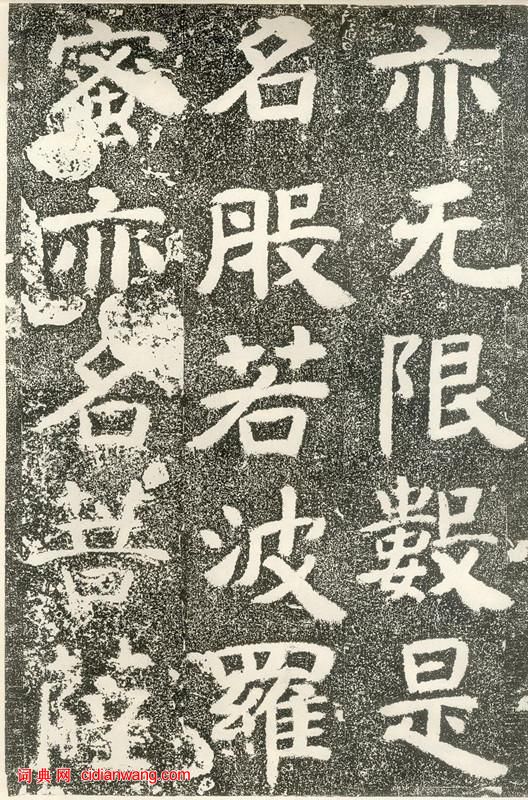 亦无限數是
名般若波羅
蜜亦名菩薩
词典网 cidianwang.com